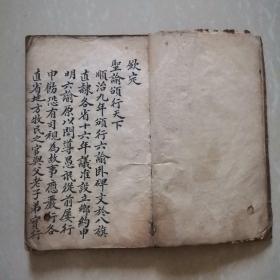 欽定
聖諭頒行天下
順治九年頒行六諭卧碑文於八旗
直隸各省十六年議准設立鄉約申
明六諭原以開導愚氓從前屢行
申飭恐有司視為故事應嚴行各
直省地方牧民之官與父老子弟實行